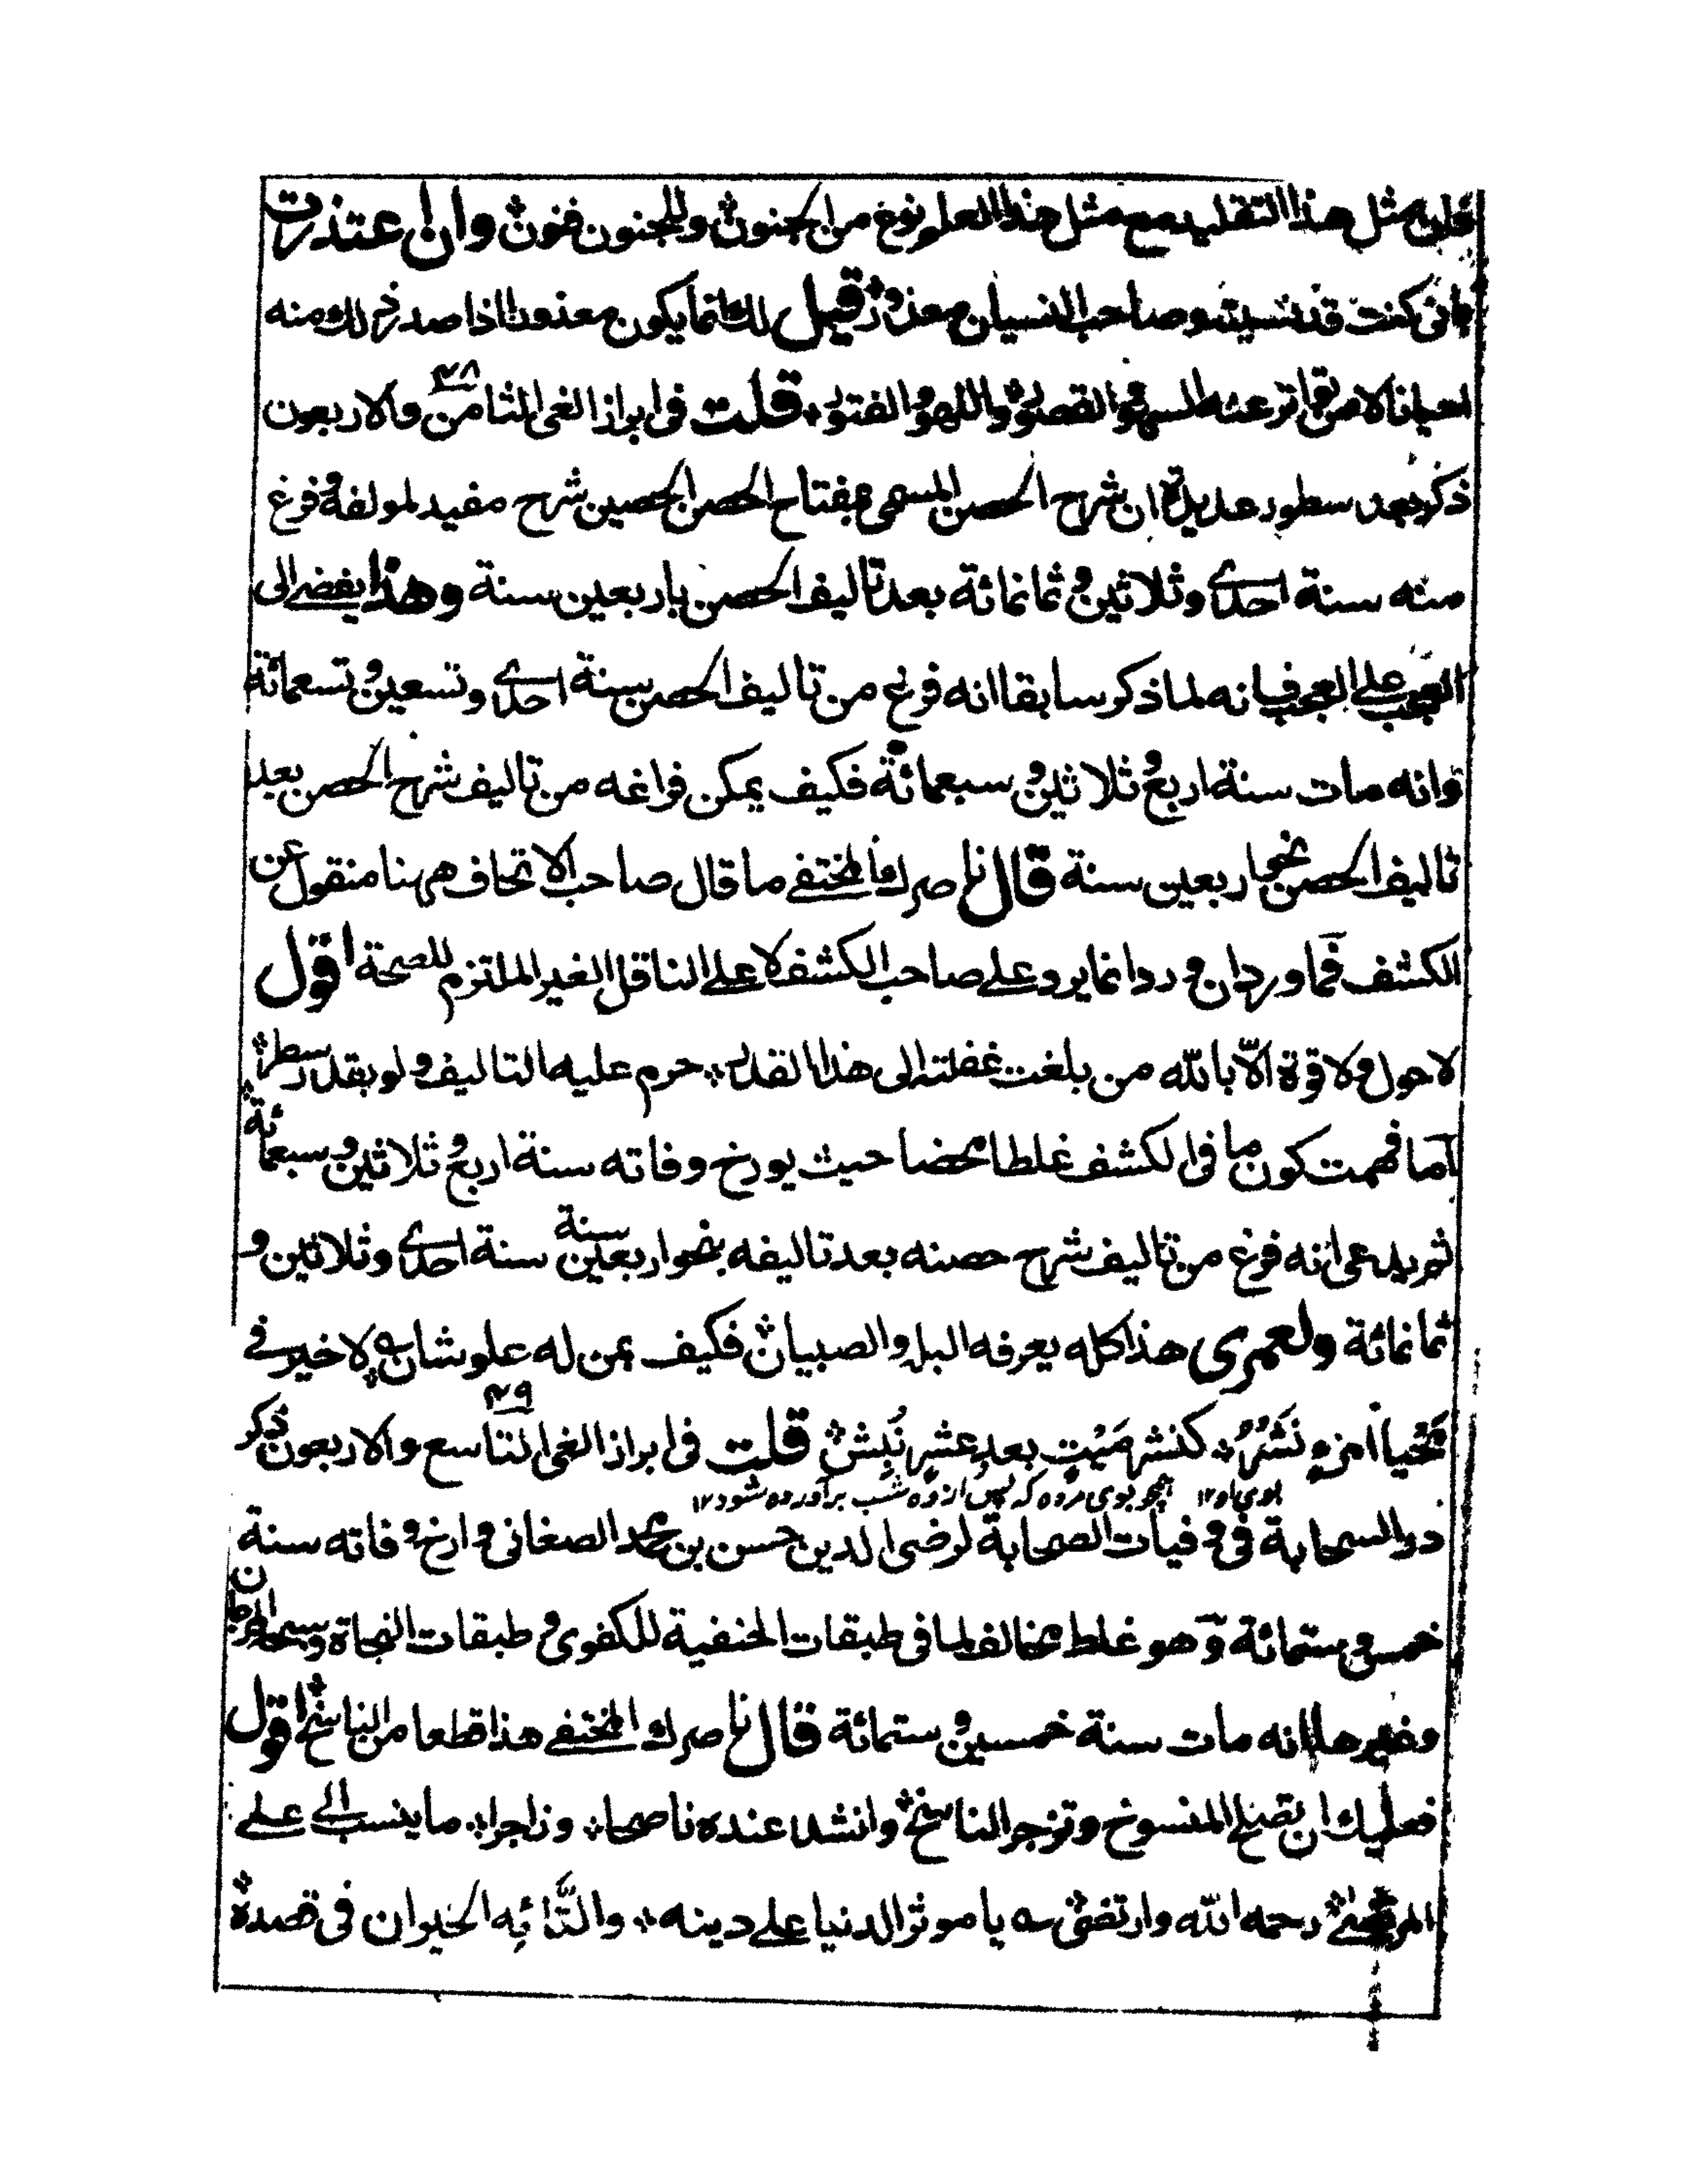 فان مثل هذا التقليد مع مثل هذا العلم نوع من الجنون وللجنون فنون وان اعتذرت
بانی كنت قد نسيته وصاحب النسيان معذور قيل لك انما يكون معذورا اذا صدر ذلك منه
احيانا لا من تواتر عنه السهو والقصور واللهو والفتور قلت فی ابراز الغی الثامن والاربعون ۴۸
ذكر بعد سطور عديدة ان شرح الحصن المسمی بمفتاح الحصن الحصين شرح مفيد لمولفه وفرغ
منه سنة احدی وثلاثين وثمانمائة بعد تاليف الحصن باربعين سنة وهذا يفضے الی
العجب علی العجب فانه لما ذكر سابقا انه فرغ من تاليف الحصن سنة احدی وتسعين وتسعمائة
وانه مات سنة اربع وثلاثين وسبعمائة فكيف يمكن فراغه من تاليف شرح الحصن بعد
تاليف الحصن بنحو اربعين سنة قال ناصرك المختفے ما قال صاحب الاتحاف ههنا منقول عن
الكشف فما ورد ان ورد انما يرد علے صاحب الكشف لا علے الناقل الغير الملتزم للصحة اقول
لا حول ولا قوة الا بالله من بلغت غفلته الی هذا القدر حرم عليه التاليف ولو بقدر سطر
اما فهمت كون ما فی الكشف غلطا محضا حيث يورخ وفاته سنة اربع وثلاثين وسبعمائة
ثم يدعی انه فرغ من تاليف شرح حصنه بعد تاليفه بنحو اربعين سنة سنة احدی وثلاثين و
ثمانمائة ولعمری هذا كله يعرفه البله والصبيان فكيف بمن له علو شان لا خير فے
محيا امرء نشره كنشر ميت بعد عشر نبش قلت فی ابراز الغی التاسع والاربعون ذكر ۴۹
بوی او ۱۲ همچو بوی مرده كه پس از ده شب برآورده شود ۱۲
در السحابة فی وفيات الصحابة لرضی الدين حسن بن محمد الصغانی وارخ وفاته سنة
خمس وستمائة وهو غلط مخالف لما فی طبقات الحنفية للكفوی وطبقات النحاة وسبحة المرجان
وغيرها انه مات سنة خمسين وستمائة قال ناصرك المختفے هذا قطعا من الناسخ اقول
فعليك ان تصلح المنسوخ وتزجر الناسخ وانشد عنده ناصحا وزاجرا ما ينسب الے علے
المرتضے رحمه الله وارتضی یا موثر الدنيا علے دينه والتائه الحيران فی قصده